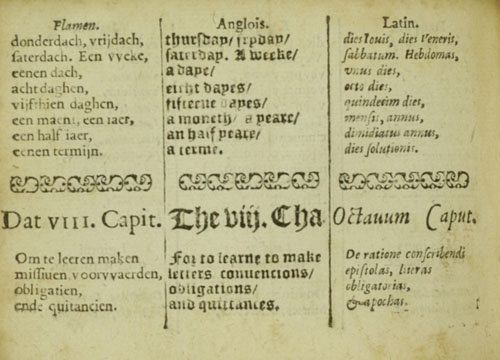 Flamen.
donderdach, vrijdach,
saterdach. Een vveke,
eenen dach,
acht daghen,
vijfthien daghen,
een maent, een iaer,
een half iaer,
eenen termijn.
Dat VIII. Capit.
Om te leeren maken
missiuen voorvvaerden,
obligatien,
ende quitancien.
Anglois.
thursday/ fryday/
saterday. A weeke/
a daye/
eight dayes/
fifteene dayes/
a moneth/ a yeare/
an half yeare/
a terme.
The viij. Cha
For to learne to make
letters conuencions/
obligations/
and quittances.
Latin.
dies Iouis, dies Veneris,
sabbatum. Hebdomas,
vnus dies,
octo dies,
quindecim dies,
mensis, annus,
dimidiatus annus,
dies solutionis.
Octauum Caput.
De ratione conscribendi
epistolas, literas
obligatorias,
& apochas.